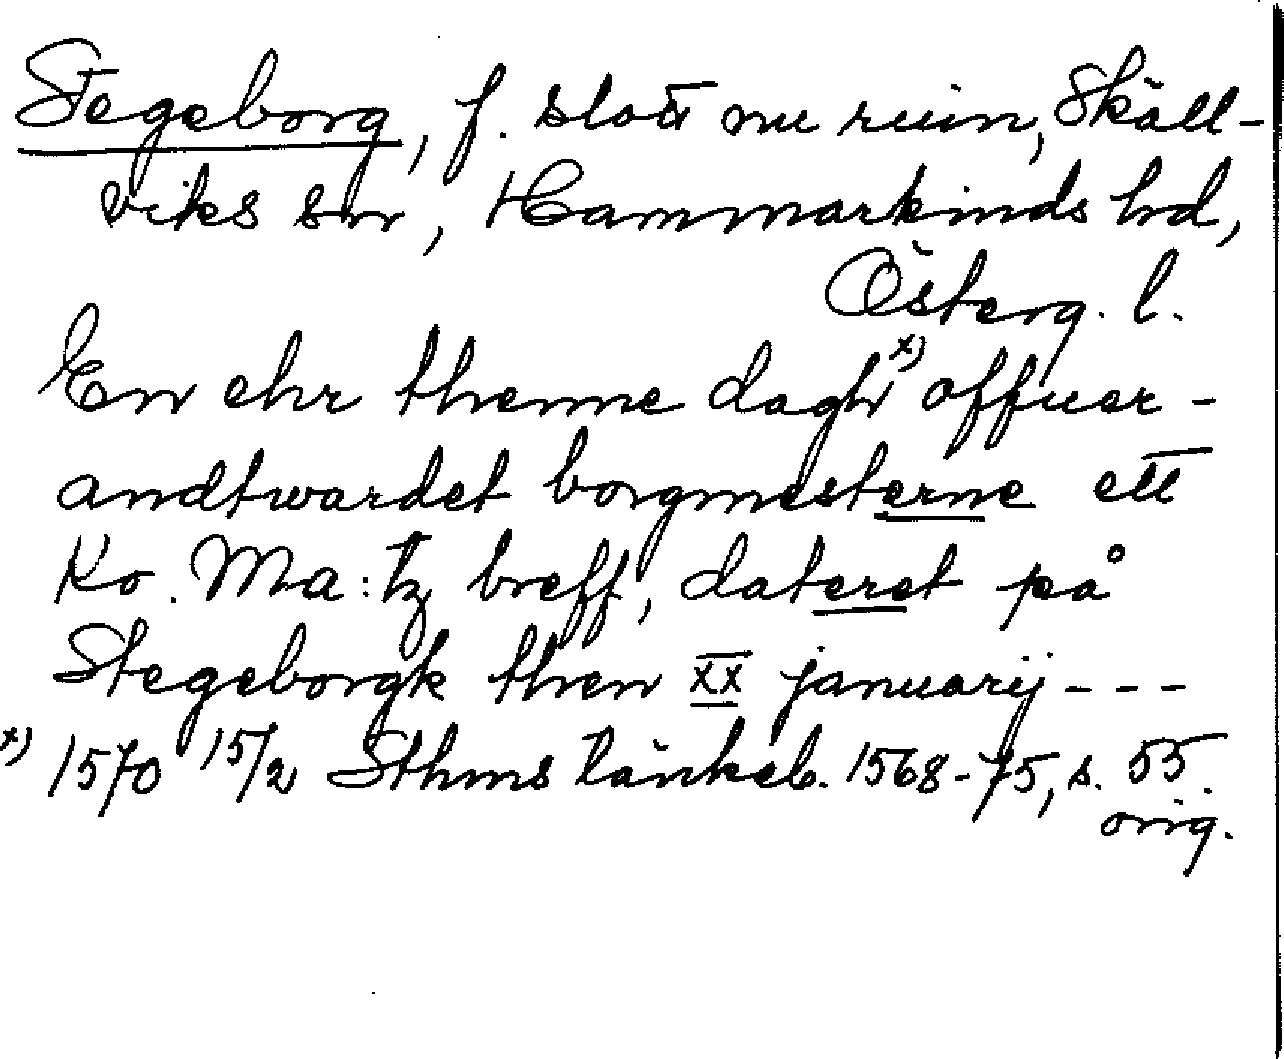 Stegeborg, f. slott nu ruin, Skäll-
viks sn, Hammarkinds hd,
Österg. l.
En ehr thenne dagh x) offuer-
andtwardet borgmesterne ett
Ko. Ma:tz breff, dateret på
Stegeborgk then XX januarij - - -
x) 1570 15/2 Sthms tänkeb. 1568-75, s. 55.
orig.